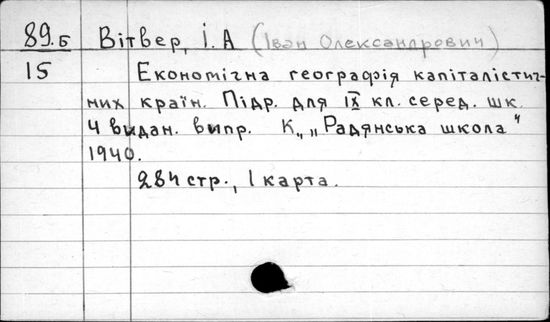 89.Б Вітвер, І. А (Іван Олександрович)
15 Економічна географія капіталістич-
них країн. Підр. для IX кл. серед. шк.
4 видан. випр. К„ „Радянська школа"
1940.
284 стр., 1 карта.